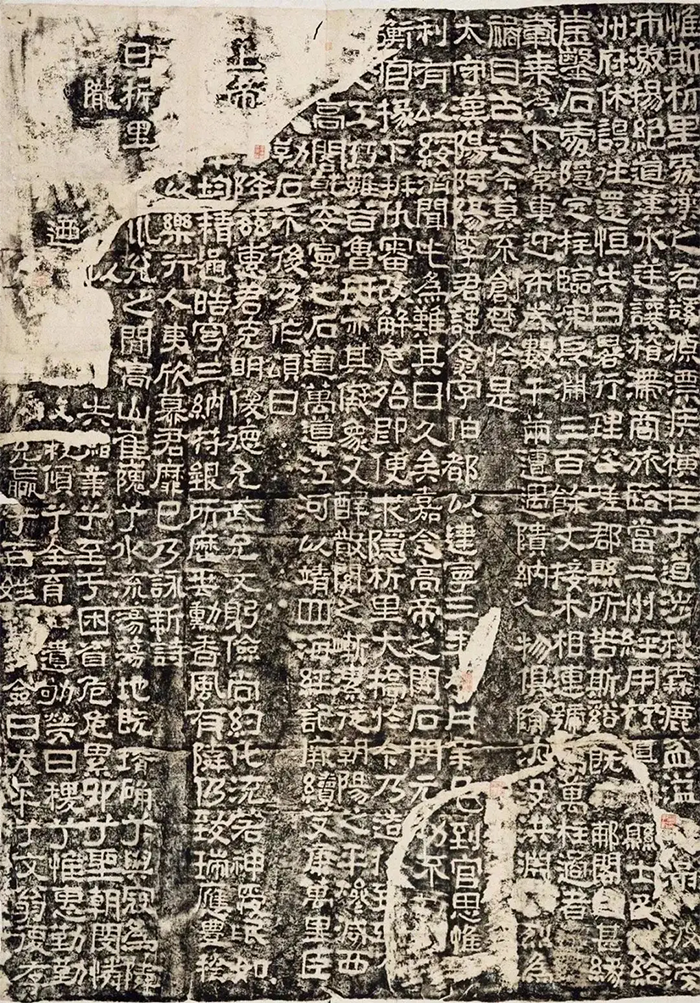 惟斯析里處漢之右溪源漂疾橫柱于道涉秋霖漉盆溢滔濤波滂
沛激揚絕道漢水逆讓稽滯商旅路當二州經用柠沮縣士民給
州府休謁往還恒失日晷行理咨嗟郡縣所苦斯谿既然郙閣尤甚緣
崖鑿石處隱定柱臨深長淵三百餘丈接木相連號為萬柱過者
載乘為下常車迎布歲數千兩遭遇隤納人物俱隋沉沒洪淵酷烈為
禍自古迄今莫不創楚於是
太守漢陽阿陽李君諱翕字伯都以建寧三年二月辛巳到官思惟
利有以綏濟聞此為難其日久矣嘉念高帝之開石門元功不朽乃
衡官掾下辨仇審改解危殆即便求隱析里大橋於今乃造校致
工巧雖昔魯班亦其儗象又醳散關之嶃漯從朝陽之平燥減西
高閣就安寧之石道禹導江河以靖四海經記厥續艾康萬里臣
勒石示後乃作頌曰
上帝 降茲惠君克明俊德允武允文躬儉尚約化流若神愛氓如
均精通晧穹三納符銀所歷垂勳香風有隣仍致瑞應豐稔
以樂行人夷欣慕君靡已乃詠新詩
曰析里 兌之間高山崔隗兮水流蕩蕩地既塉确兮與寇為隣
隴 以 失緒業兮至于困貧危危累卵兮聖朝閔憐
救傾兮全育遺劬勞日稷兮惟惠勤勤
充贏兮百姓 僉曰太平兮文翁復存